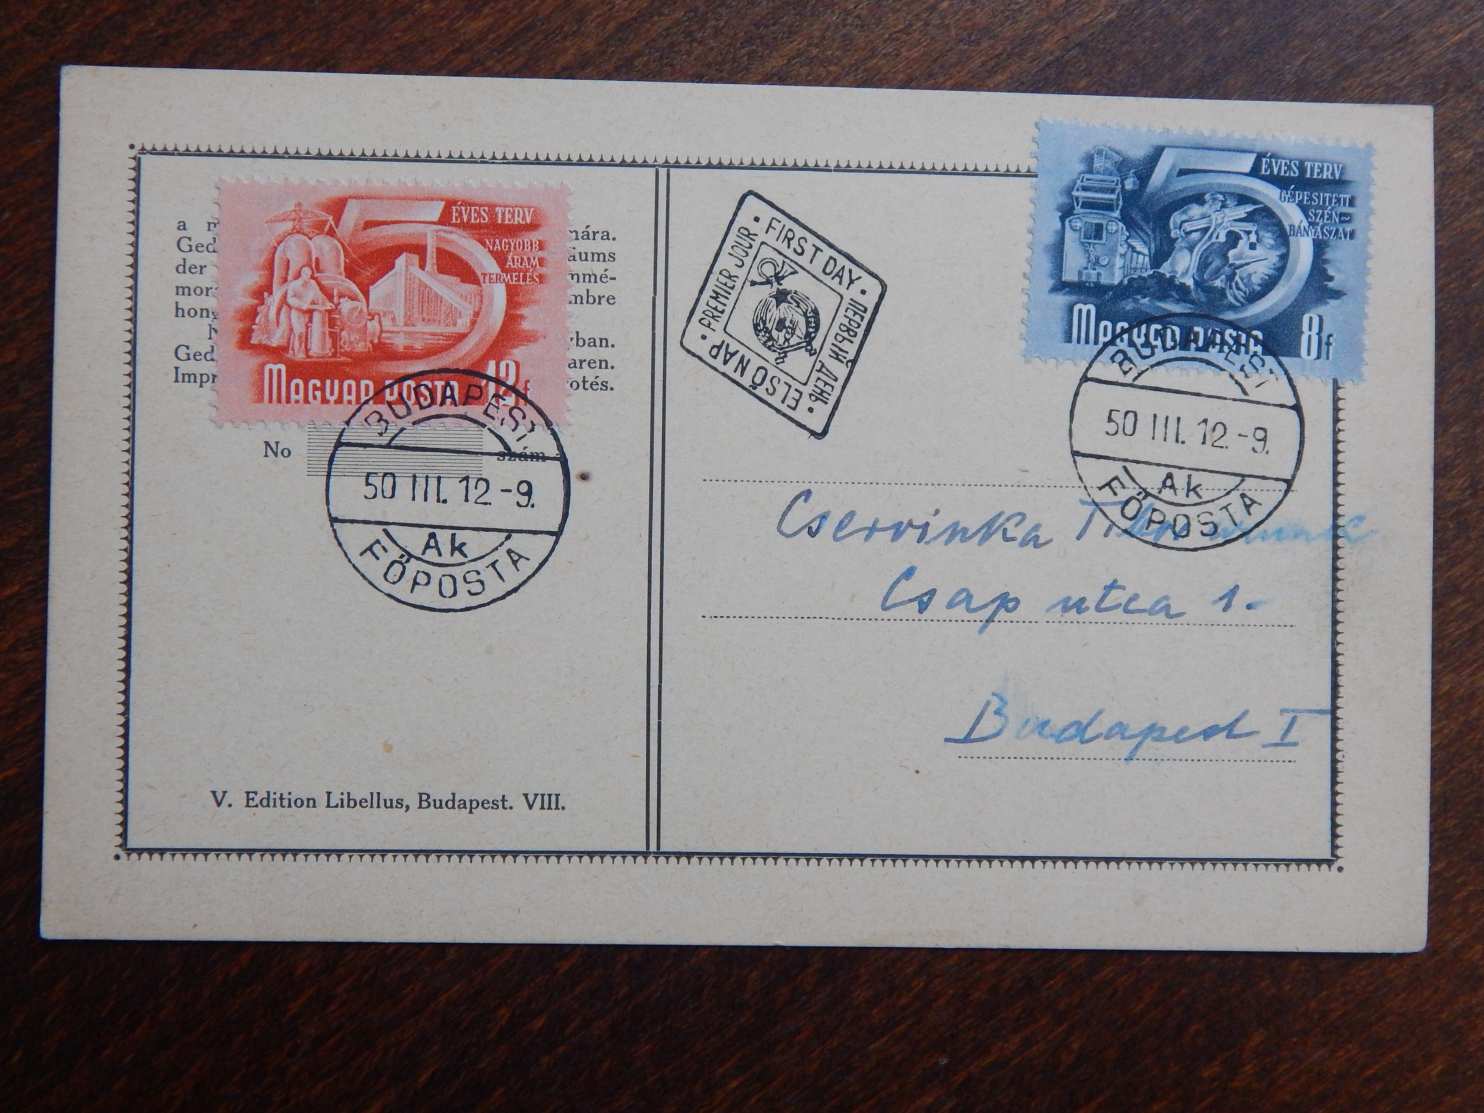 5 ÉVES TERV
NAGYOBB
ÁRAM
TERMELÉS
MAGYAR POSTA 12f
5 ÉVES TERV
GÉPESITETT
SZÉN-
BÁNYÁSZAT
MAGYAR POSTA 8f
PREMIER JOUR · FIRST DAY · ПЕРВЫЙ ДЕНЬ · ELSŐ NAP
a
Ged
der
mor
hong
Ged
Impr
mára.
äums
mmé-
mbre
yban.
aren.
votés.
No szám
BUDAPEST
50 III. 12 -9.
Ak
FŐPOSTA
BUDAPEST
50 III. 12 -9.
Ak
FŐPOSTA
Cservinka
Csap utca 1.
Budapest I
V. Edition Libellus, Budapest. VIII.